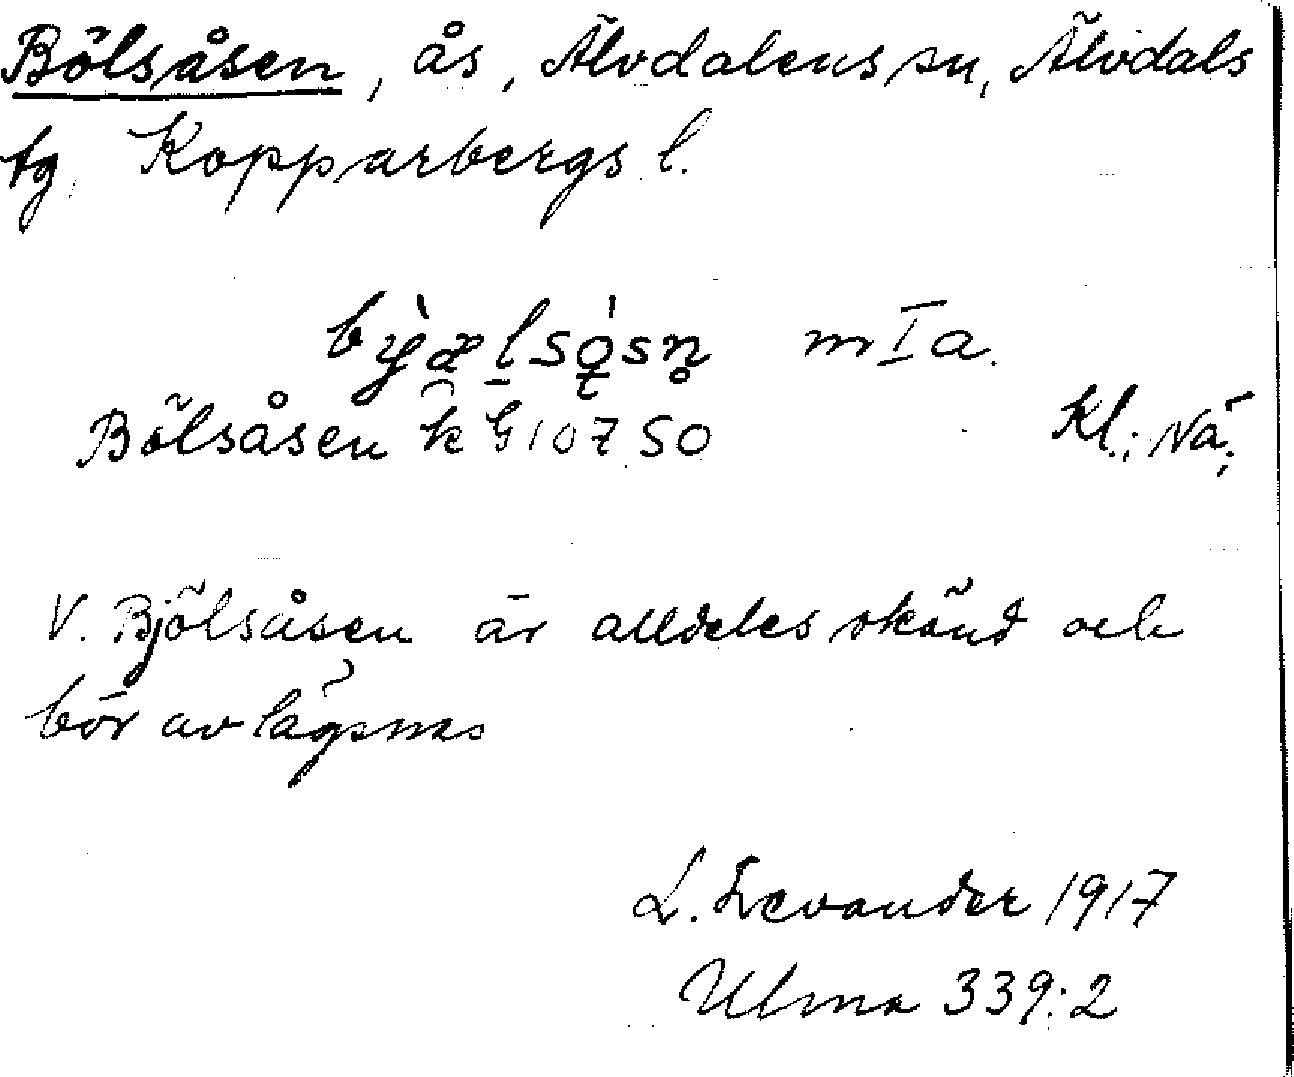 Bölsåsen, ås, Älvdalens sn, Älvdals
tg, Kopparbergs l.
m I a.
Bölsåsen k G 107 50 Kl.; Nä;
V. Bjölsåsen är alldeles okänd och
bör avlägsnas
L. Levander 1917
Ulma 339:2